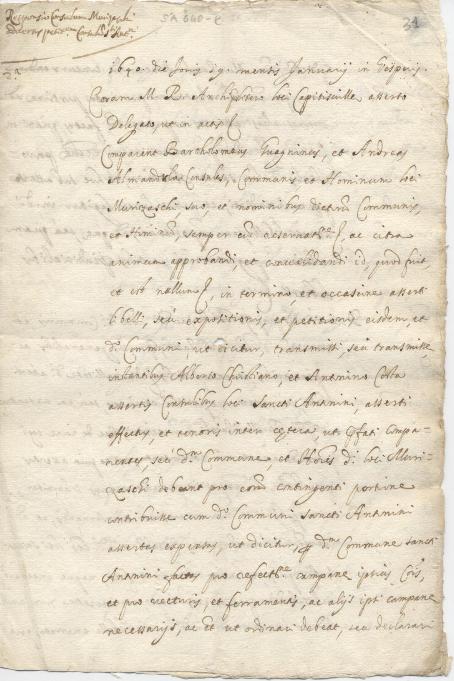 Responsio Consulum Murizaschi
31
2ª
1640 die Jovis 19 mensis Januarii in Vesperis
Coram all. R. Archipresbytero loci Capitisville asserto
Delegato, ut in actis
Comparent Bartholomeus Guagninus, et Andreas
Consules, Communis et Hominum loci
Murizaschi, suo, et nominibus dictorum Communis,
et Hominum, semper cum reservatne, ac citra
animum approbandi, et convalidandi id, quod fuit,
et est nullum, in termino, et occasione asserti
libelli, seu expositionis, et petitionis eisdem, et
do Communi, ut dicitur, transmissi, seu transmisse,
instantibus Alberto, et Antonino Costa
assertis Consulibus loci Sancti Antnini, asserti
effectus, et tenoris inter cetera, ut pfati compa-
rentes, seu dm Commune, et Hoies di loci Muri-
zaschi debeant pro eorum contingenti portione
contribuisse cum do Communi Sancti Antnini
assertas expensas, ut dicitur, p dm Commune Sancti
Antnini factas pro refectne campane ipsius Cois,
et pro vecturis, et ferramentis, ac alijs ipsi campane
necessarijs, ac et ut ordinari debeat, seu declarari